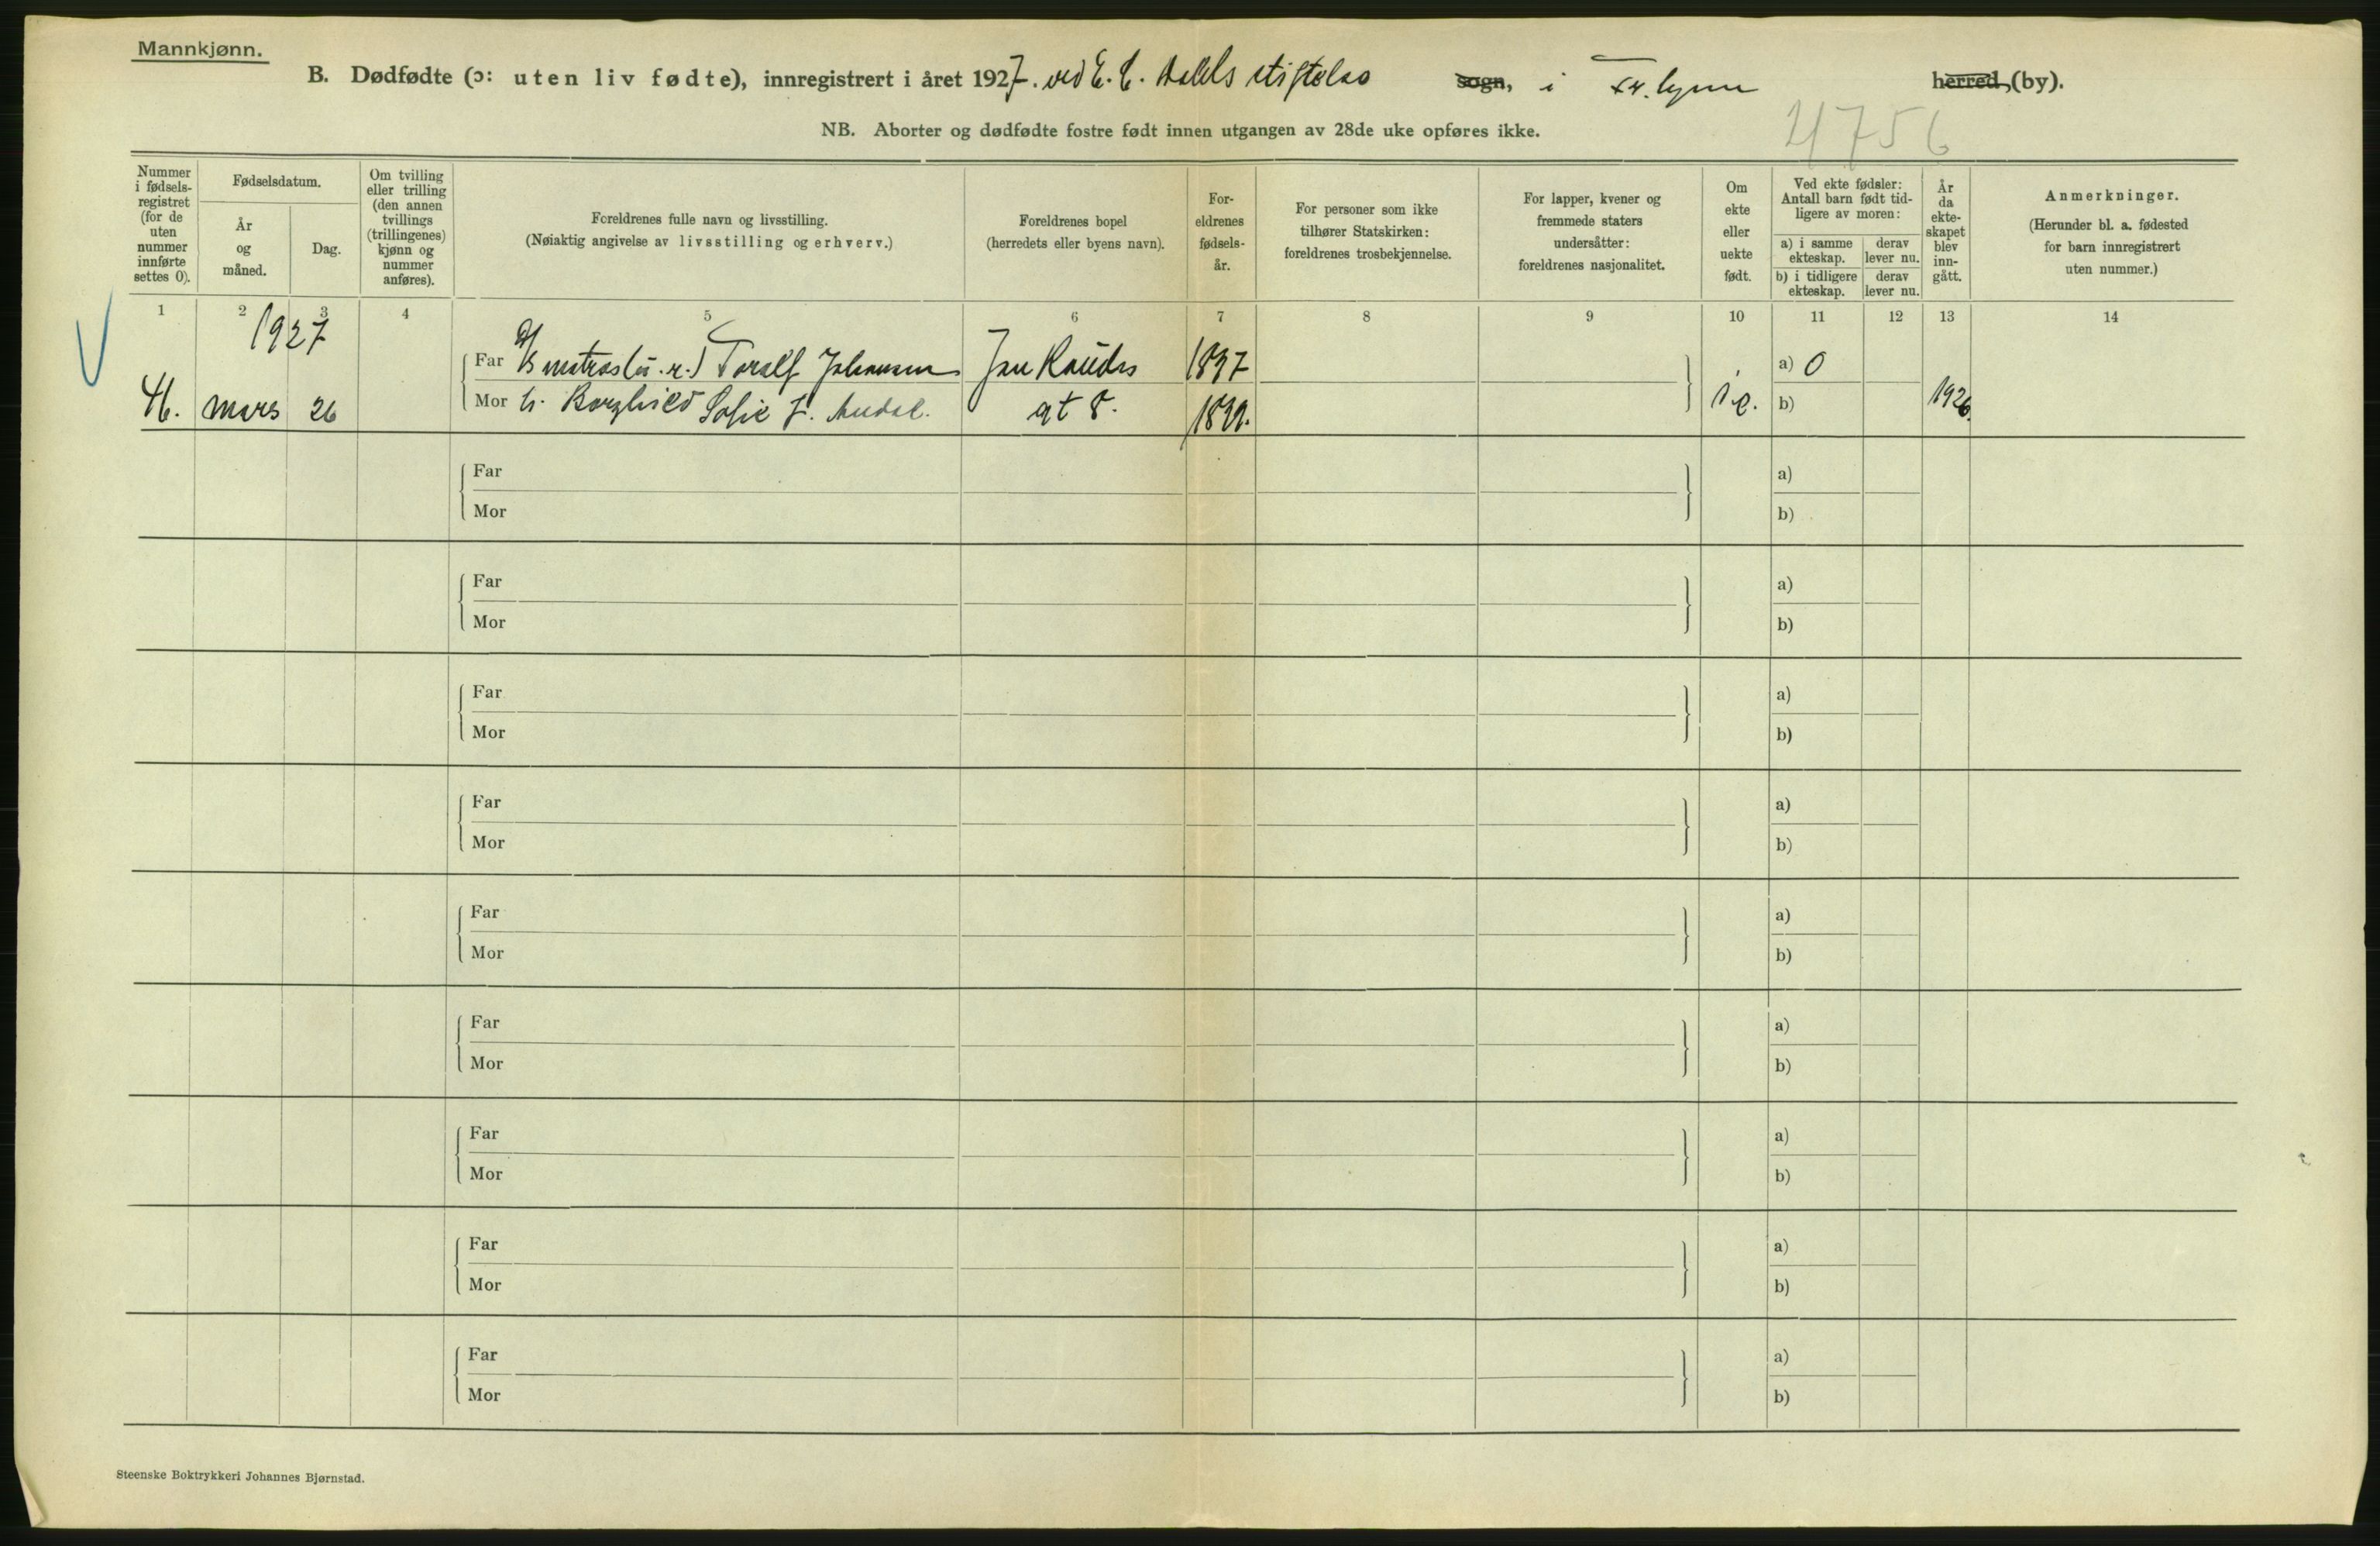 Mannkjønn.
B. Dødfødte (ɔ: uten liv fødte), innregistrert i året 1927. ved E. C. Dahls stiftelse sogn, i Tr.hjem herred, (by).
4756
NB. Aborter og dødfødte fostre født innen utgangen av 28de uke opføres ikke.
Nummer i fødsels-registret (for de uten nummer innførte settes 0).
Fødselsdatum.
År og måned.
Dag.
Om tvilling eller trilling (den annen tvillings (trillingenes) kjønn og nummer anføres).
Foreldrenes fulle navn og livsstilling.
(Nøiaktig angivelse av livsstilling og erhverv.)
Foreldrenes bopel
(herredets eller byens navn).
For-eldrenes fødsels-år.
For personer som ikke tilhører Statskirken: foreldrenes trosbekjennelse.
For lapper, kvener og fremmede staters undersåtter: foreldrenes nasjonalitet.
Om ekte eller uekte født.
Ved ekte fødsler: Antall barn født tid-ligere av moren:
a) i samme ekteskap.
derav lever nu.
b) i tidligere ekteskap.
derav lever nu.
År da ekte-skapet blev inn-gått.
Anmerkninger.
(Herunder bl. a. fødested for barn innregistrert uten nummer.)
1 2 3 4 5 6 7 8 9 10 11 12 13 14
1927
Far matros Toralf Johansen Jan 1897 a) 0
46. mars 26 Mor h. Borghild Sofie f. gt 8. 1899. i e. b) 1926.
Far a)
Mor b)
Far a)
Mor b)
Far a)
Mor b)
Far a)
Mor b)
Far a)
Mor b)
Far a)
Mor b)
Far a)
Mor b)
Far a)
Mor b)
Far a)
Mor b)
Steenske Boktrykkeri Johannes Bjørnstad.